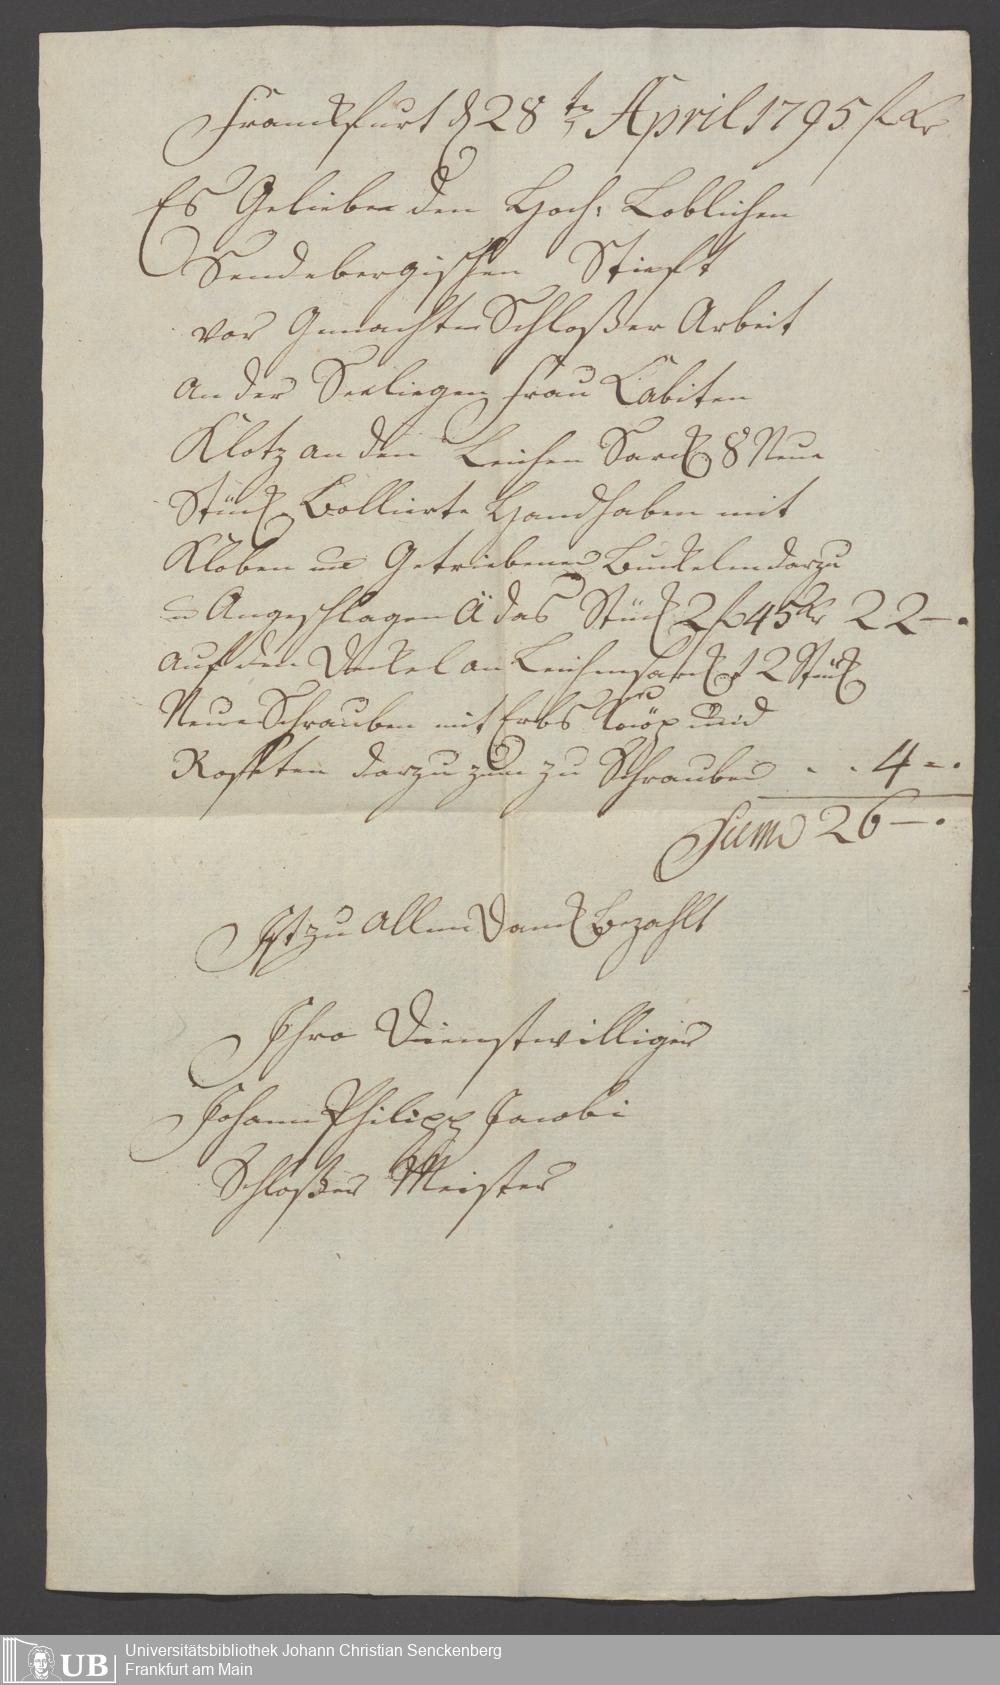 Franckfurt d 28 ten April 1795 f Kr
Es Gelieben den Hoch: Loblichen
Sendebergischen Stieft
vor Gemachte Schloßer Arbeit
an der Seeliegen frau
Klotz an den Leichen Sarck 8 Neue
Stück Bollierte Handhaben mit
Kloben un Getriebenen Buckelen darzu
u Angeschlagen ä das Stück 2 f 45 Kr 22 —.
auf den Deckel an Leichensarck 12 Stück
Neue Schrauben mit Erbs Knöp und
Rosseten darzu zum zu Schrauben . . 4 —.
Sum 26 —.
Ist zu allem Danck Bezahlt
Ihro Dienstwilliger
Johann Philipp Jacobi
Schloßer Meister
UB
Universitätsbibliothek Johann Christian Senckenberg
Frankfurt am Main